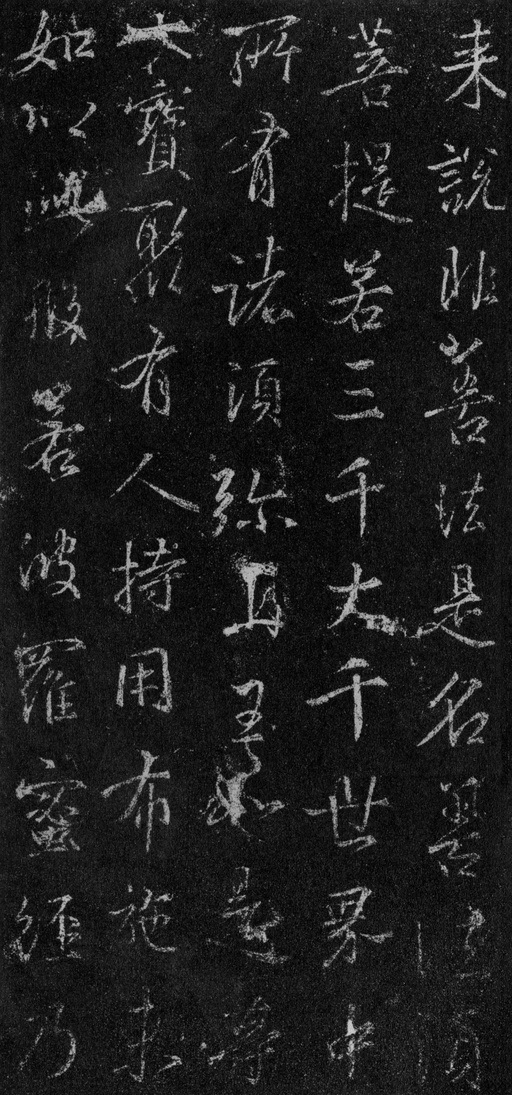 来說非善法是名善法須
菩提若三千大千世界中
所有諸須弥山王如是等
七寶聚有人持用布施未
如以此般若波羅蜜經乃